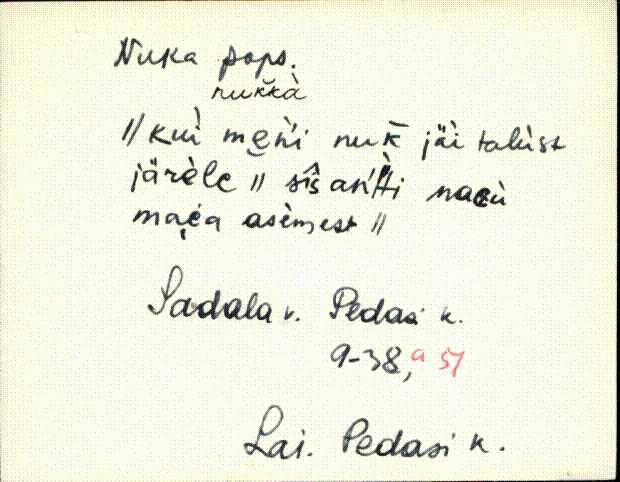 Nuka pops.
nuk̆kà
// kuì mẹńi nuk̄ jäì talùst
järèle // sîs ańt̀ti nacù
maća asèmest //
Sadala v. Pedasi k.
9-38, a 51
Lai. Pedasi k.